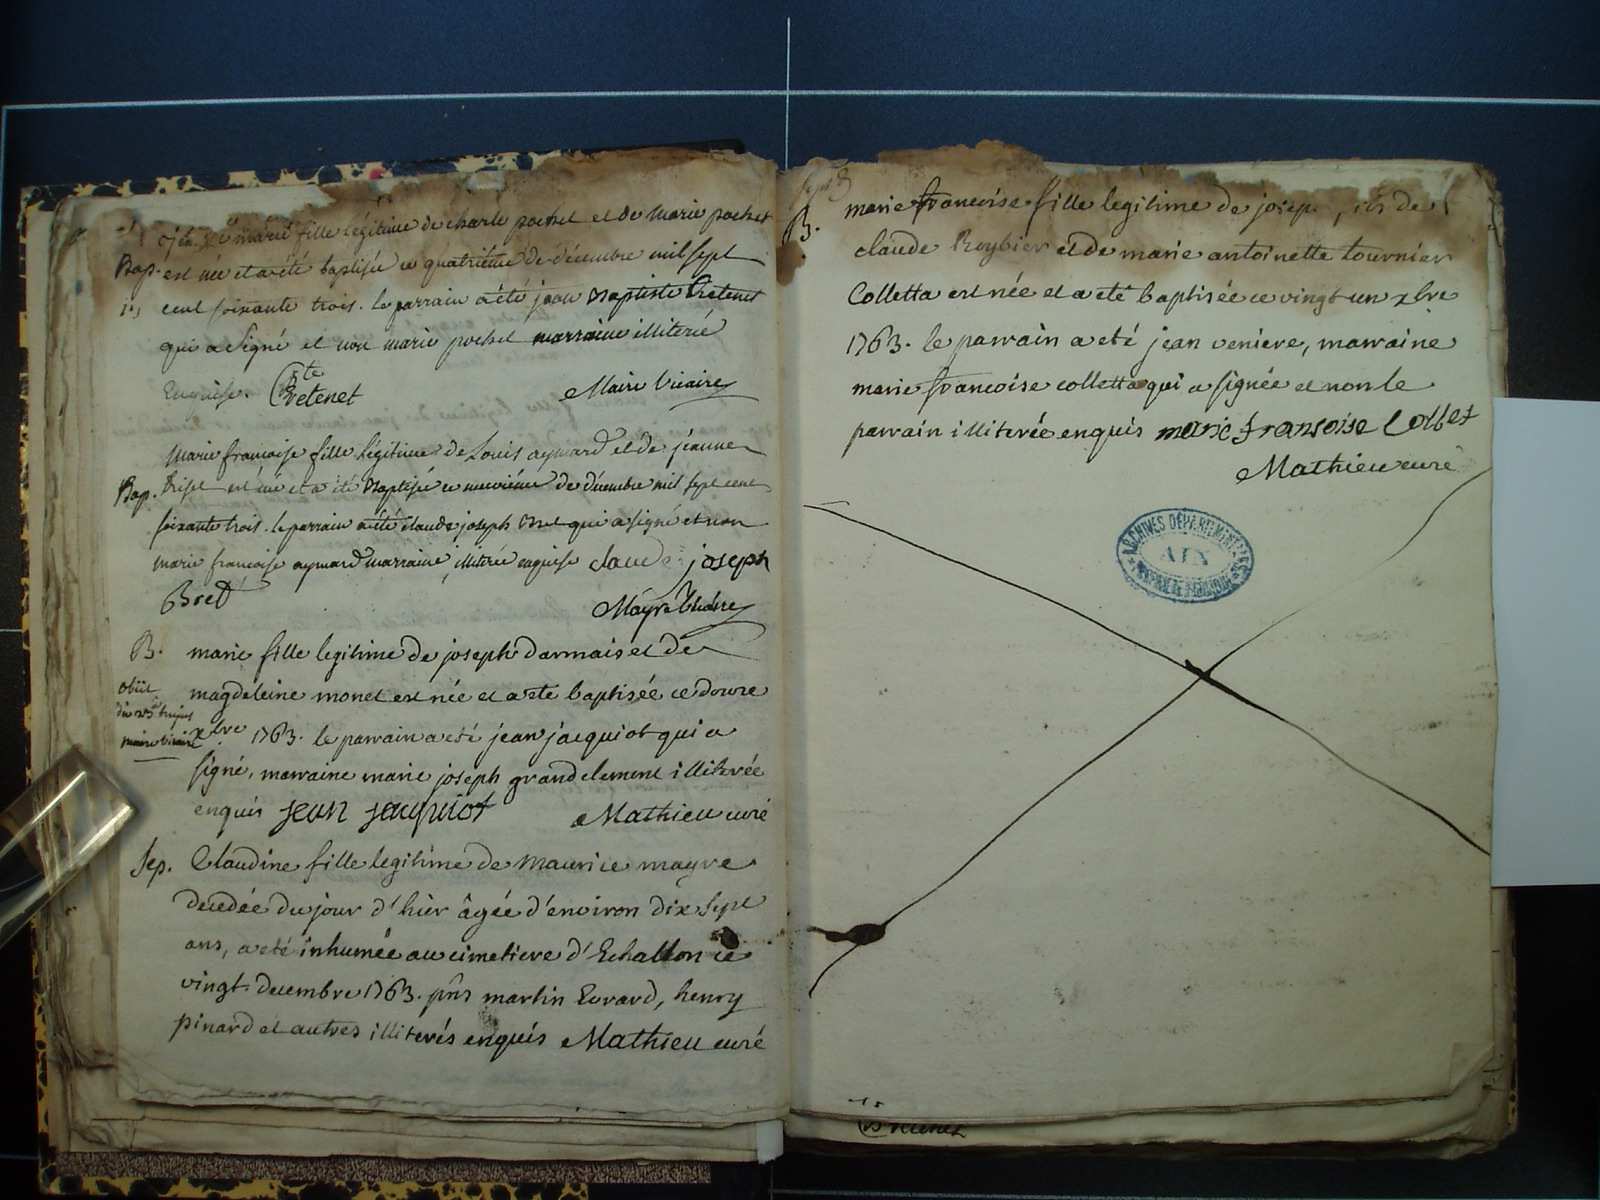 marie fille légitime de charle pochet et de Marie pochet
Bap. est née et a été baptisée ce quatrieme de décembre mil sept
cent soixante trois. le parrain a été jean Baptiste Bretenet
qui a signé et non marie pochet marraine illiterée
Enquise. Bte Bretenet Maire vicaire
Marie francoise fille légitime de Louis aymard et de jeanne
Bap. est née et a été Baptisée ce neuvième de décembre mil sept cent
soixante trois. le parrain a été claude joseph Bret qui a signé et non
marie francoise aymard marraine, illiterée enquise claude joseph
Bret Mayre Vicaire
B. marie fille legitime de joseph darmais et de
obiit magdeleine monet est née et a eté baptisée ce douze
maire vicaire xbre 1763. le parrain a eté jean jacquiot qui a
signé, marraine marie joseph grandclement illiterée
enquis jean jacquiot Mathieu curé
Sep. Claudine fille legitime de Maurice mayre
decedée du jour d'hier âgée d'environ dix sept
ans, a eté inhumée au cimetiere d'Echallon ce
vingt decembre 1763. pnts martin Evrard, henry
pinard et autres illiterés enquis Mathieu curé
marie francoise fille legitime de josep. de
B.
claude Roybier et de marie antoinette tournier
Colletta est née et a eté baptisée ce vingt un xbre
1763. le parrain a eté jean veniere, marraine
marie francoise colletta qui a signée et non le
parrain illiterée enquis marie fransoise Collet
Mathieu curé
ARCHIVES DÉPARTEMENTALES
AIN
Bretenet